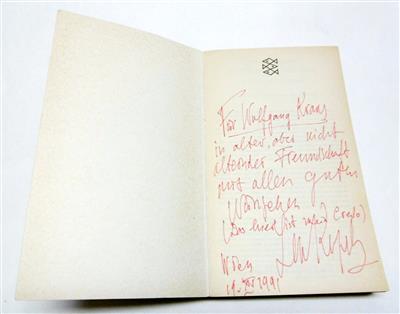 Für Wolfgang Kraus
in alter, aber nicht
alternder Freundschaft
mit allen guten
Wünschen
(das hier ist mein Credo)
Wien
1991